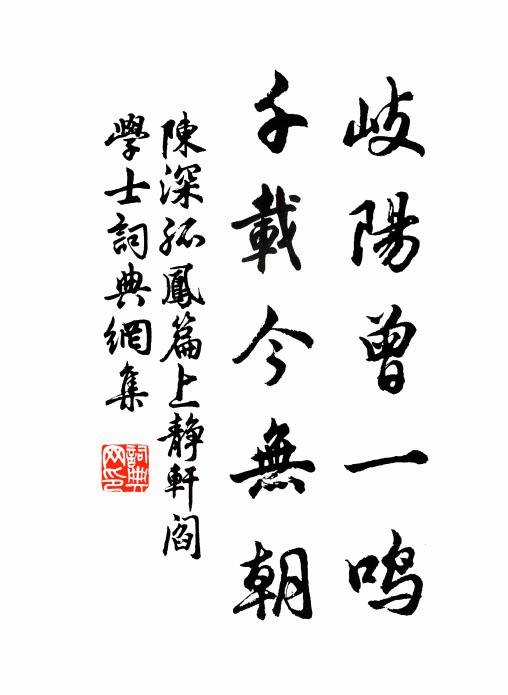 岐陽曾一鸣
千載今無朝
陳深孤鳳篇上靜軒閻
學士詞典網集
詞典网印